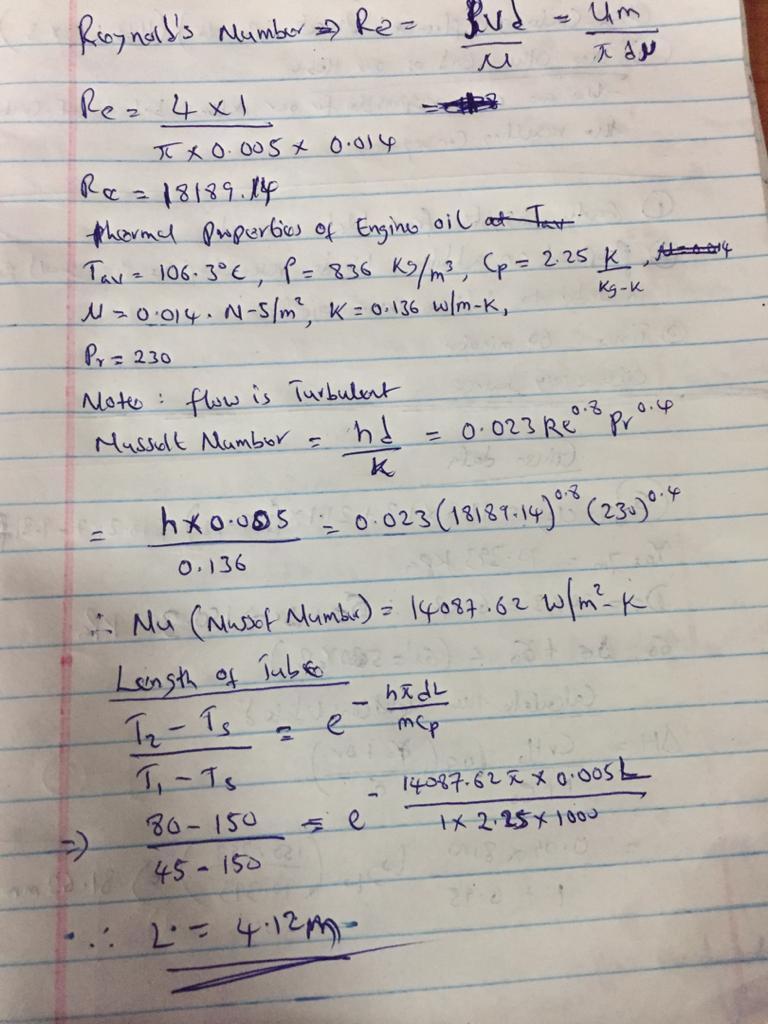 Raynold's Number ⇒ Re = ρVd/μ = 4m/πdμ
Re = 4 x 1 / π x 0.005 x 0.014
Re = 18189.14
thermal Properties of Engine oil at Tav
Tav = 106.3°C, ρ = 836 Kg/m³, Cp = 2.25 K/Kg-K,
μ = 0.014. N-S/m², K = 0.136 w/m-K,
Pr = 230
Note : flow is Turbulent
Nusselt Number = hd/K = 0.023 Re^0.8 Pr^0.4
= h x 0.005 / 0.136 = 0.023 (18189.14)^0.8 (230)^0.4
∴ Nu (Nussel Number) = 14087.62 W/m²-K
Length of Tube
T2 - Ts / T1 - Ts = e^-(hπdL/mCp)
⇒ 80 - 150 / 45 - 150 = e^-(14087.62 π x 0.005L / 1 x 2.25 x 1000)
∴ L = 4.12m